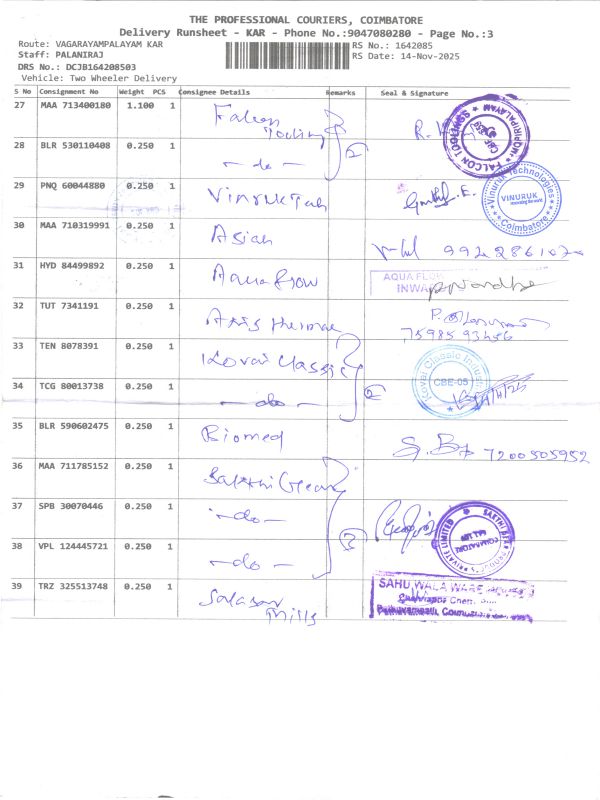 THE PROFESSIONAL COURIERS, COIMBATORE
Delivery Runsheet - KAR - Phone No.:9047080280 - Page No.:3
Route: VAGARAYAMPALAYAM KAR
RS No.: 1642085
Staff: PALANIRAJ
RS Date: 14-Nov-2025
DRS No.: DCJB164208503
Vehicle: Two Wheeler Delivery
S No Consignment No Weight PCS Consignee Details Remarks Seal & Signature
27 MAA 713400180 1.100 1 Falcon Tooling
28 BLR 530110408 0.250 1 - do - 2
FALCON TOOLINGS
29 PNQ 60044880 0.250 1 Vinuruk Tech
Vinuruk Technologies
VINURUK
Coimbatore
30 MAA 710319991 0.250 1 Asian
31 HYD 84499892 0.250 1 Aqua flow
AQUA FLOW
INWARD
32 TUT 7341191 0.250 1 Axis thermal
7598593456
33 TEN 8078391 0.250 1 Kovai classic
34 TCG 80013738 0.250 1 - do - 2
Kovai Classic Industries
CBE-05
35 BLR 590602475 0.250 1 Biomed 7200505952
36 MAA 711785152 0.250 1 Sakthi Gear
37 SPB 30070446 0.250 1 - do - 3
38 VPL 124445721 0.250 1 - do -
SAKTHI GEAR PRIVATE LIMITED
39 TRZ 325513748 0.250 1 Salasar Mills
SAHUWALA WARE